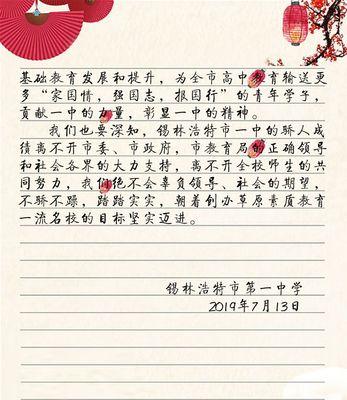 基础教育发展和提升，为全市高中教育输送更
多“家国情，强国志，报国行”的青年学子，
贡献一中的力量，彰显一中的精神。
我们也要深知，锡林浩特市一中的骄人成
绩离不开市委、市政府，市教育局的正确领导
和社会各界的大力支持，离不开全校师生的共
同努力，我们绝不会辜负领导、社会的期望，
不骄不躁，踏踏实实，朝着创办草原素质教育
一流名校的目标坚实迈进。
锡林浩特市第一中学
2019年7月13日